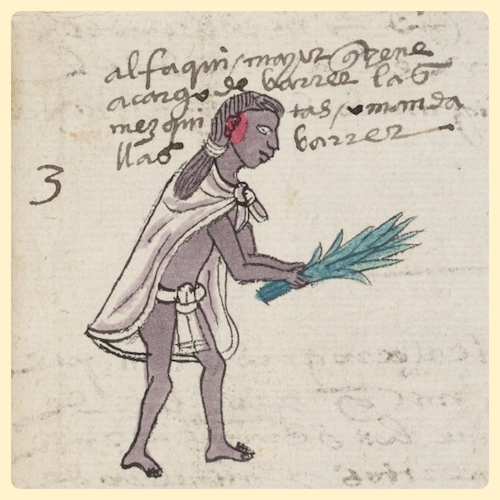 alfaqui / mayor q̃ tiene
acargo de barrer las
mezquitas / o manda
llas barrer
3